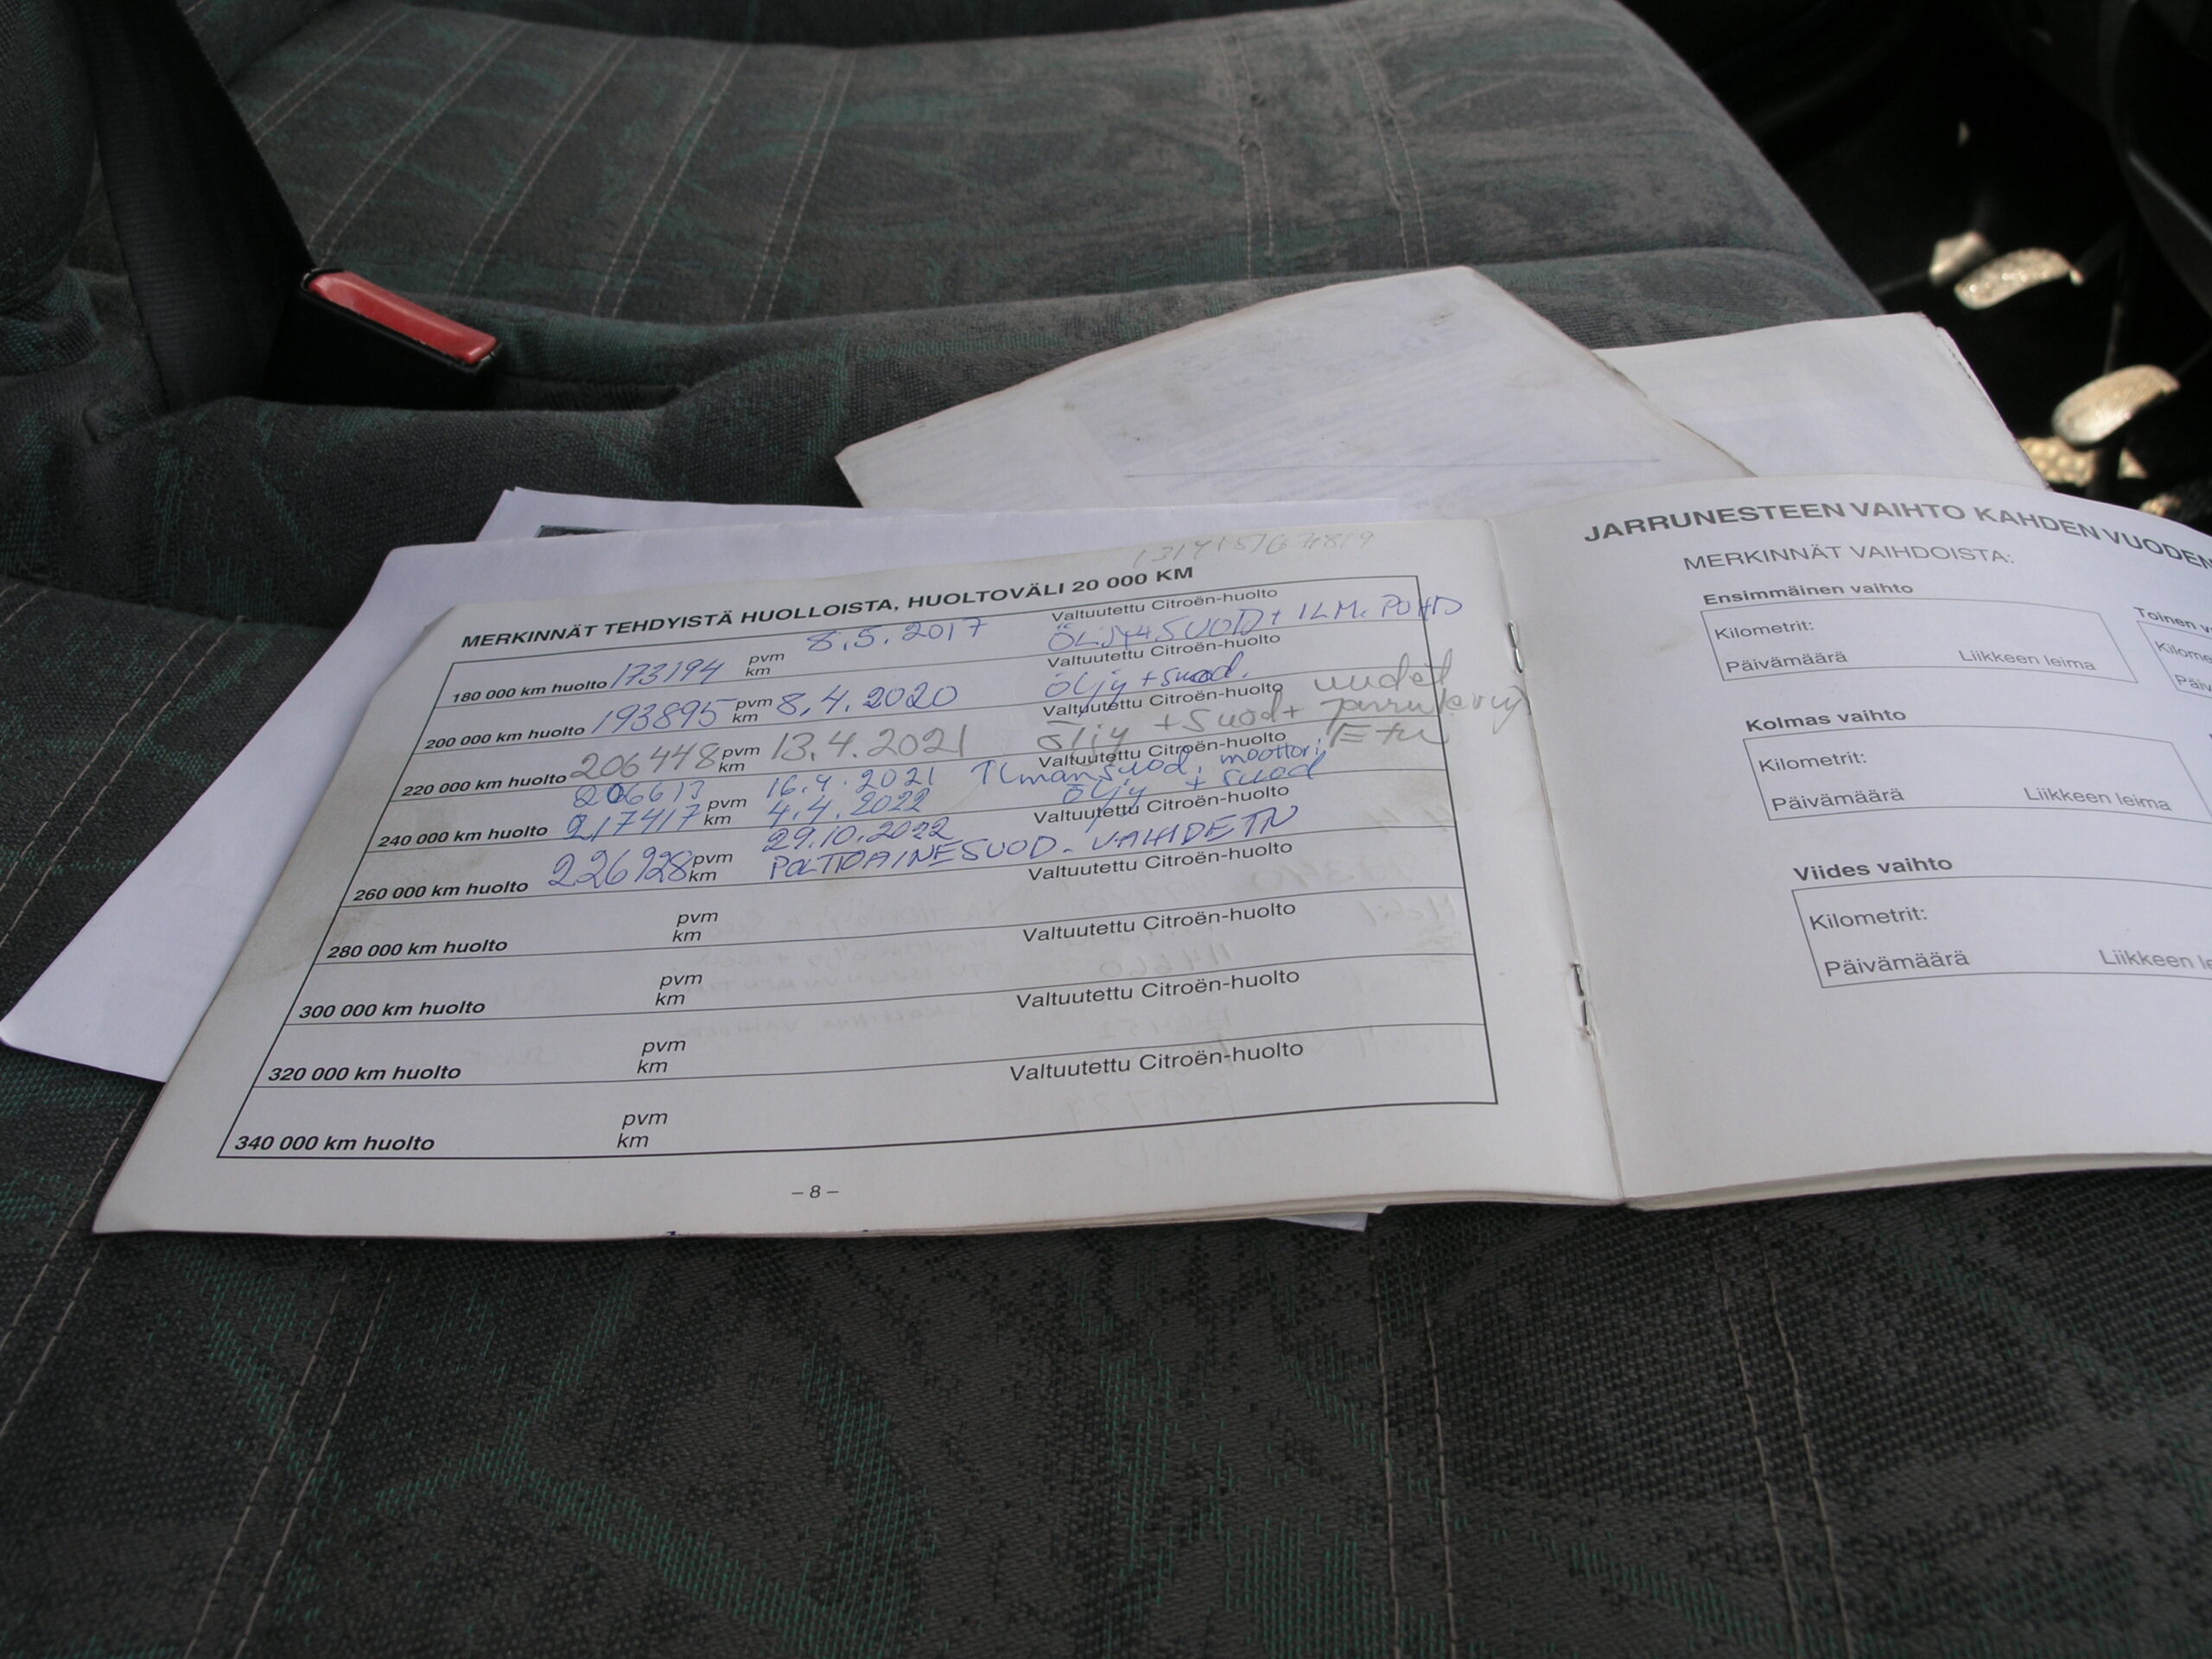 MERKINNÄT TEHDYISTÄ HUOLLOISTA, HUOLTOVÄLI 20 000 KM
180 000 km huolto 173194 pvm km 8.5.2017 Valtuutettu Citroën-huolto
ÖLJY+SUOD+ ILM. POHD
200 000 km huolto 193895 pvm km 8.4.2020 Valtuutettu Citroën-huolto
öljy + suod.
220 000 km huolto 206448 pvm km 13.4.2021 Valtuutettu Citroën-huolto
öljy + suod + uudet
Etu
206613 16.4.2021 Valtuutettu Citroën-huolto
Ilmansuod, moottori
240 000 km huolto 217417 pvm km 4.4.2022 öljy + suod
29.10.2022 Valtuutettu Citroën-huolto
260 000 km huolto 226928 pvm km POLTTOAINESUOD. VAIHDETTU
280 000 km huolto pvm km Valtuutettu Citroën-huolto
300 000 km huolto pvm km Valtuutettu Citroën-huolto
320 000 km huolto pvm km Valtuutettu Citroën-huolto
340 000 km huolto pvm km Valtuutettu Citroën-huolto
– 8 –
JARRUNESTEEN VAIHTO KAHDEN VUODEN
MERKINNÄT VAIHDOISTA:
Ensimmäinen vaihto
Kilometrit:
Päivämäärä Liikkeen leima
Toinen
Kolmas vaihto
Kilometrit:
Päivämäärä Liikkeen leima
Viides vaihto
Kilometrit:
Päivämäärä Liikkeen